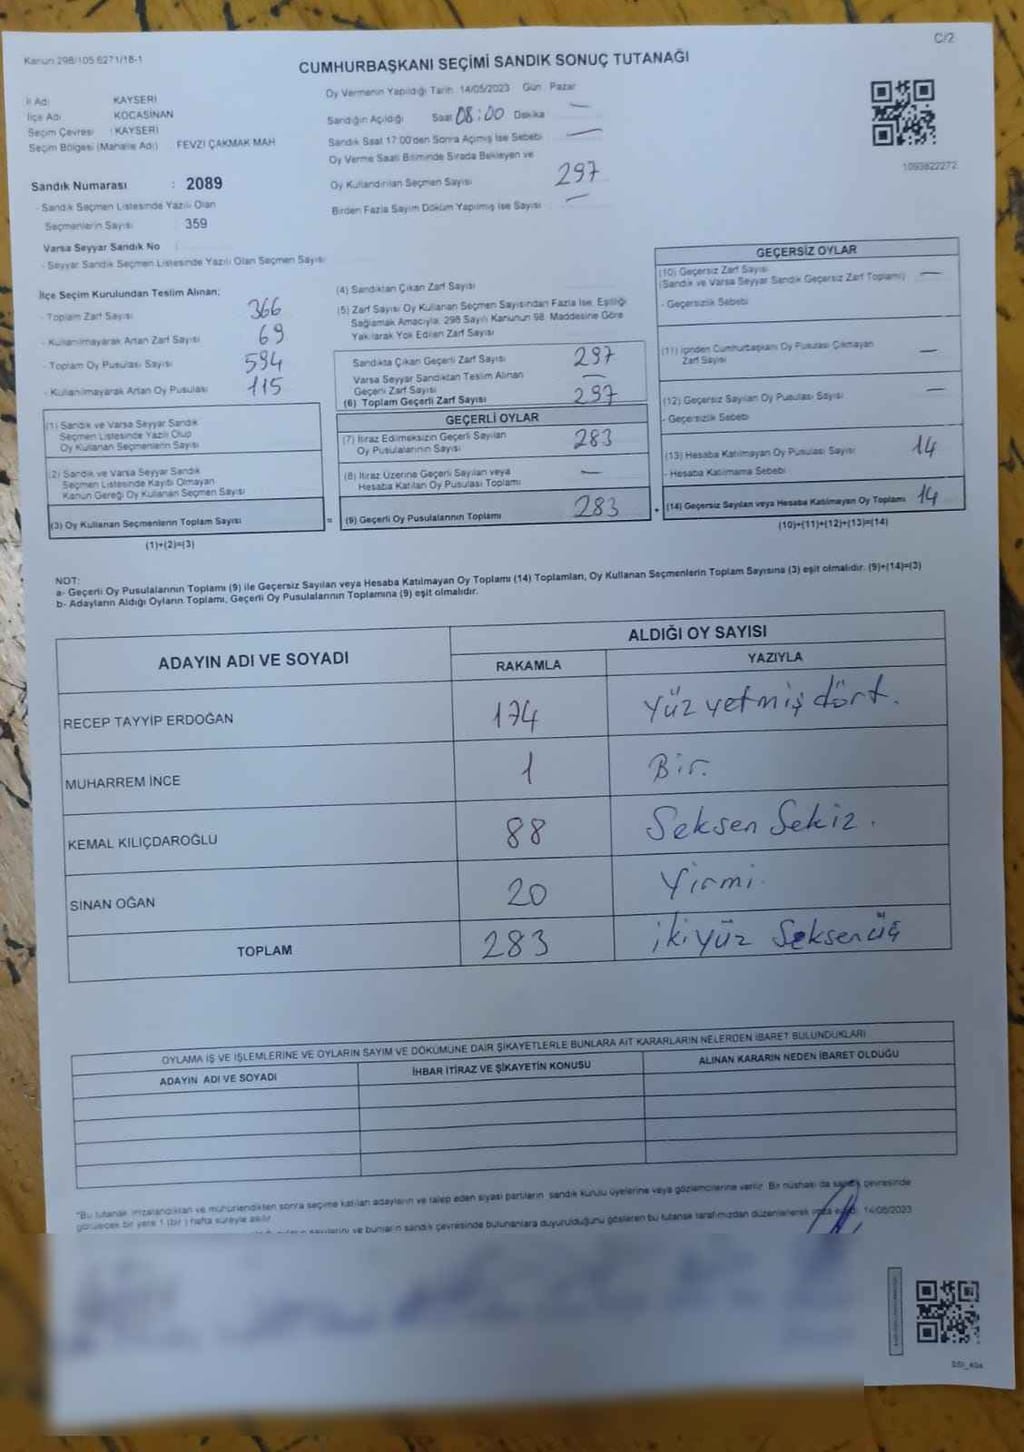 Kanun 298/105 6271/18-1
C/2
CUMHURBAŞKANI SEÇİMİ SANDIK SONUÇ TUTANAĞI
İl Adı : KAYSERİ
İlçe Adı : KOCASİNAN
Seçim Çevresi : KAYSERİ
Seçim Bölgesi (Mahalle Adı) FEVZİ ÇAKMAK MAH
Sandık Numarası : 2089
- Sandık Seçmen Listesinde Yazılı Olan
Seçmenlerin Sayısı 359
Varsa Seyyar Sandık No
- Seyyar Sandık Seçmen Listesinde Yazılı Olan Seçmen Sayısı
Oy Vermenin Yapıldığı Tarih 14/05/2023 Gün Pazar
Sandığın Açıldığı Saat 08:00 Dakika —
Sandık Saat 17:00'den Sonra Açımış İse Sebebi —
Oy Verme Saati Bitiminde Sırada Bekleyen ve
Oy Kullandırılan Seçmen Sayısı 297
Birden Fazla Sayım Döküm Yapılmış İse Sayısı —
1093822272
İlçe Seçim Kurulundan Teslim Alınan;
- Toplam Zarf Sayısı 366
- Kullanılmayarak Artan Zarf Sayısı 69
- Toplam Oy Pusulası Sayısı 594
- Kullanılmayarak Artan Oy Pusulası 115
(1) Sandık ve Varsa Seyyar Sandık
Seçmen Listesinde Yazılı Olup
Oy Kullanan Seçmenlerin Sayısı
(2) Sandık ve Varsa Seyyar Sandık
Seçmen Listesinde Kayıtlı Olmayan
Kanun Gereği Oy Kullanan Seçmen Sayısı
(3) Oy Kullanan Seçmenlerin Toplam Sayısı
(1)+(2)=(3)
=
(4) Sandıktan Çıkan Zarf Sayısı
(5) Zarf Sayısı Oy Kullanan Seçmen Sayısından Fazla İse, Eşitliği
Sağlamak Amacıyla, 298 Sayılı Kanunun 98. Maddesine Göre
Yakılarak Yok Edilen Zarf Sayısı
Sandıkta Çıkan Geçerli Zarf Sayısı 297
Varsa Seyyar Sandıktan Teslim Alınan
Geçerli Zarf Sayısı —
(6) Toplam Geçerli Zarf Sayısı 297
GEÇERLİ OYLAR
(7) İtiraz Edilmeksizin Geçerli Sayılan
Oy Pusulalarının Sayısı 283
(8) İtiraz Üzerine Geçerli Sayılan veya
Hesaba Katılan Oy Pusulası Toplamı —
(9) Geçerli Oy Pusulalarının Toplamı 283
+
GEÇERSİZ OYLAR
(10) Geçersiz Zarf Sayısı
(Sandık ve Varsa Seyyar Sandık Geçersiz Zarf Toplamı) —
- Geçersizlik Sebebi
(11) İçinden Cumhurbaşkanı Oy Pusulası Çıkmayan
Zarf Sayısı —
(12) Geçersiz Sayılan Oy Pusulası Sayısı —
- Geçersizlik Sebebi
(13) Hesaba Katılmayan Oy Pusulası Sayısı 14
- Hesaba Katılmama Sebebi
(14) Geçersiz Sayılan veya Hesaba Katılmayan Oy Toplamı 14
(10)+(11)+(12)+(13)=(14)
NOT:
a- Geçerli Oy Pusulalarının Toplamı (9) ile Geçersiz Sayılan veya Hesaba Katılmayan Oy Toplamı (14) Toplamları, Oy Kullanan Seçmenlerin Toplam Sayısına (3) eşit olmalıdır. (9)+(14)=(3)
b- Adayların Aldığı Oyların Toplamı, Geçerli Oy Pusulalarının Toplamına (9) eşit olmalıdır.
ADAYIN ADI VE SOYADI
ALDIĞI OY SAYISI
RAKAMLA YAZIYLA
RECEP TAYYİP ERDOĞAN 174 Yüz yetmiş dört.
MUHARREM İNCE 1 Bir.
KEMAL KILIÇDAROĞLU 88 Seksen Sekiz.
SİNAN OĞAN 20 Yirmi.
TOPLAM 283 ikiyüz Seksenüç
OYLAMA İŞ VE İŞLEMLERİNE VE OYLARIN SAYIM VE DÖKÜMÜNE DAİR ŞİKAYETLERLE BUNLARA AİT KARARLARIN NELERDEN İBARET BULUNDUKLARI
ADAYIN ADI VE SOYADI İHBAR İTİRAZ VE ŞİKAYETİN KONUSU ALINAN KARARIN NEDEN İBARET OLDUĞU
*Bu tutanak imzalandıktan ve mühürlendikten sonra seçime katılan adayların ve talep eden siyasi partilerin sandık kurulu üyelerine veya gözlemcilerine verilir. Bir nüshası da sandık çevresinde
görülecek bir yere 1 (bir ) hafta süreyle asılır.
sayılarını ve bunların sandık çevresinde bulunanlara duyurulduğunu gösteren bu tutanak tarafımızdan düzenlenerek imza edildi. 14/05/2023